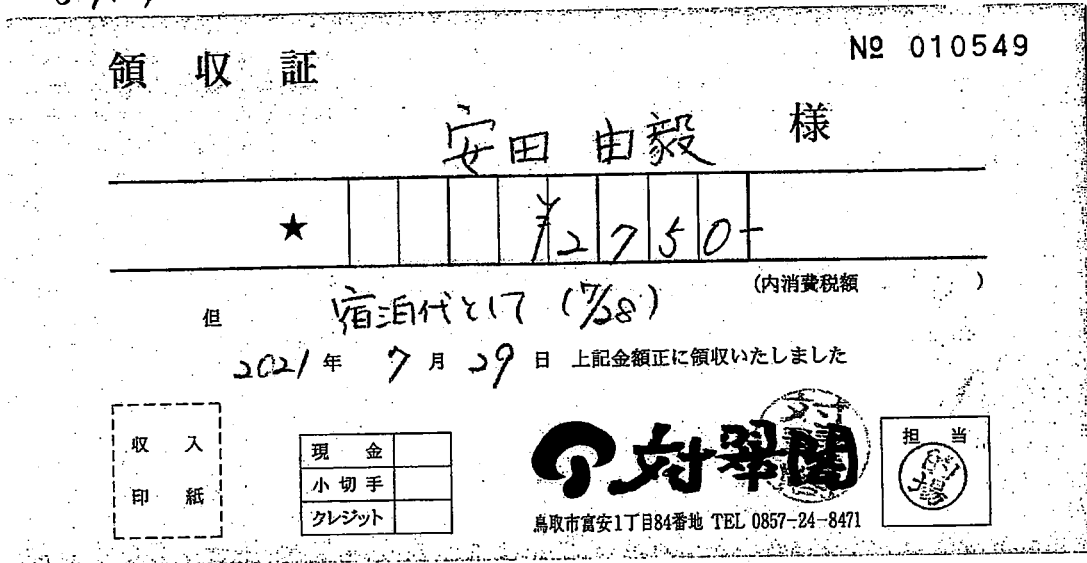 領収証
№ 010549
安田 由毅 様
★ ¥2750-
(内消費税額 )
但 宿泊代として (7/28)
2021年 7月 29日 上記金額正に領収いたしました
収入
印紙
現金
小切手
クレジット
対翠閣
担当
鳥取市富安1丁目84番地 TEL 0857-24-8471